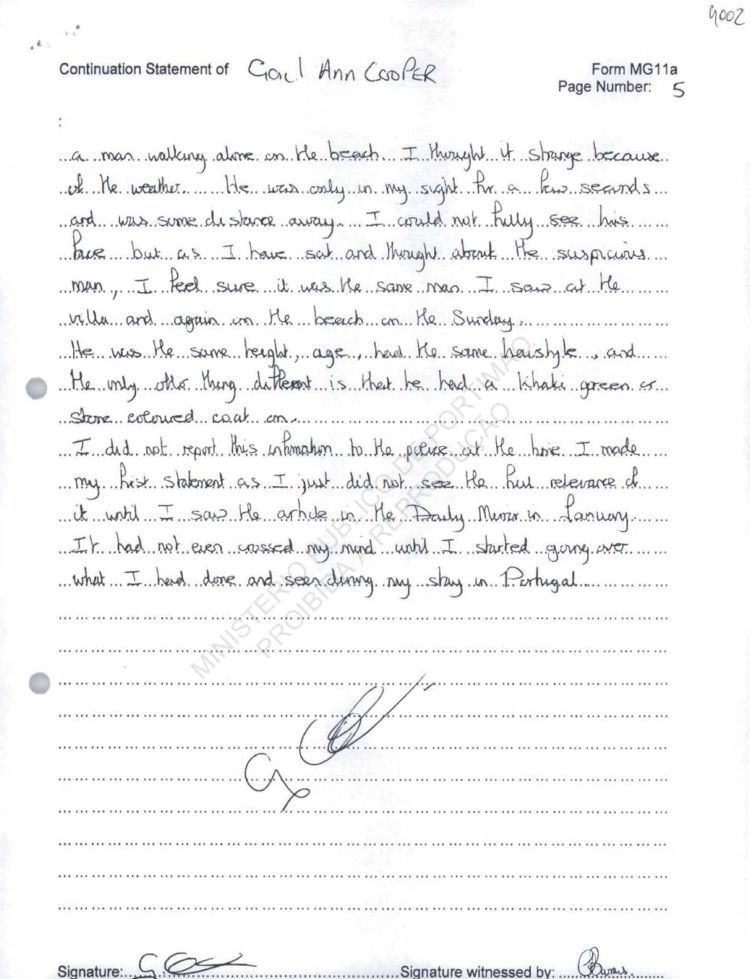 4002
Continuation Statement of Gail Ann COOPER
Form MG11a
Page Number: 5
:
a man walking alone on the beach. I thought it strange because
of the weather. He was only in my sight for a few seconds
and was some distance away. I could not fully see his
face but as I have sat and thought about the suspicious
man, I feel sure it was the same man I saw at the
villa and again on the beach on the Sunday.
He was the same height, age, had the same hairstyle, and
the only other thing different is that he had a khaki green or
stone coloured coat on.
I did not report this information to the police at the time I made
my first statement as I just did not see the full relevance of
it until I saw the article in the Daily Mirror in January.
It had not even crossed my mind until I started going over
what I had done and seen during my stay in Portugal.
MINISTERIO PUBLICO DE PORTIMAO
PROIBIDA A REPRODUÇÃO
Signature:
Signature witnessed by: